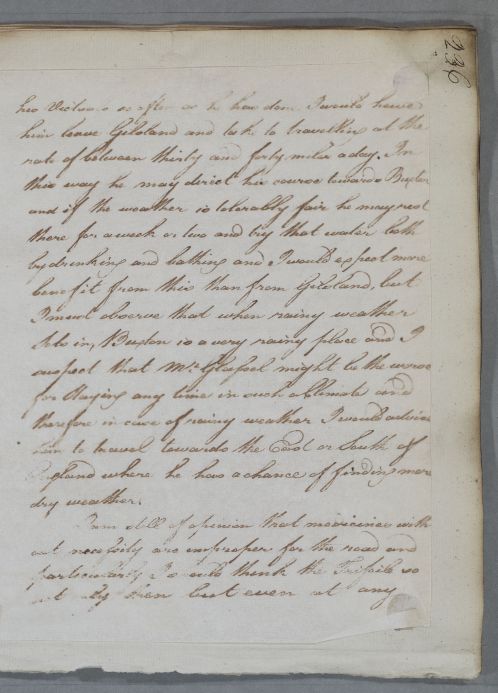 236
his as often as he has done I would have
him leave Gilsland and take to travelling at the
rate of between thirty and forty miles a day. In
this way he may direct his course towards Buxton
and if the weather is tolerably fair he may rest
there for a week or two and try that water both
by drinking and bathing and I would expect more
benefit from this than from Gilsland, but
I must observe that when rainy weather
sets in, Buxton is a very rainy place and I
suspect that Mr. Glassel might be the worse
for staying any time in such a Climate and
therefore in case of rainy weather I would advise
him to travel towards the East or South of
England where he has a chance of finding more
dry weather.
I am still of opinion that medicines with
out necessity are improper for the road and
particularly I would think the Trifoile so
not only then but even at any